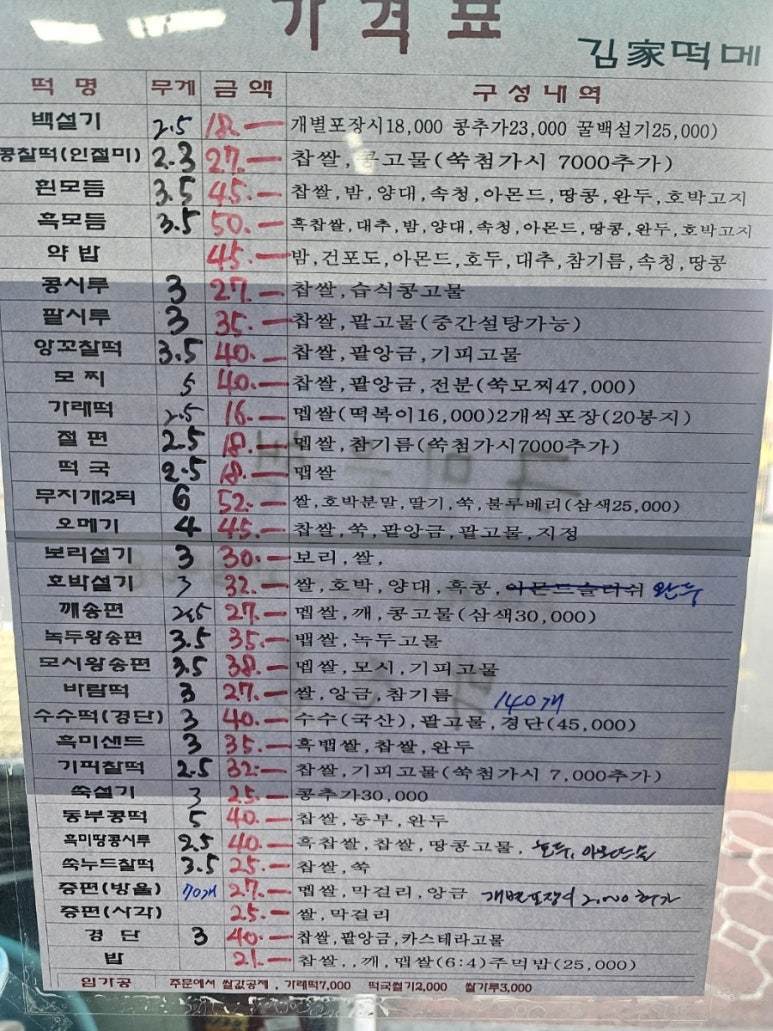 가격표
김家떡메
떡명 무게 금액 구성내역
백설기 2.5 18.— 개별포장시18,000 콩추가23,000 꿀백설기25,000)
콩찰떡(인절미) 2.3 27.— 찹쌀, 콩고물(쑥첨가시 7000추가)
흰모듬 3.5 45.— 찹쌀,밤,양대,속청,아몬드,땅콩,완두,호박고지
흑모듬 3.5 50.— 흑찹쌀,대추,밤,양대,속청,아몬드,땅콩,완두,호박고지
약밥 45.— 밤,건포도,아몬드,호두,대추,참기름,속청,땅콩
콩시루 3 27.— 찹쌀,습식콩고물
팥시루 3 35.— 찹쌀,팥고물(중간설탕가능)
앙꼬찰떡 3.5 40.— 찹쌀,팥앙금,기피고물
모찌 5 40.— 찹쌀,팥앙금,전분(쑥모찌47,000)
가래떡 2.5 16.— 멥쌀(떡복이16,000)2개씩포장(20봉지)
절편 2.5 18.— 멥쌀,참기름(쑥첨가시7000추가)
떡국 2.5 18.— 맵쌀
무지개2되 6 52.— 쌀,호박분말,딸기,쑥,불루베리(삼색25,000)
오메기 4 45.— 찹쌀,쑥,팥앙금,팥고물,지정
보리설기 3 30.— 보리,쌀,
호박설기 3 32.— 쌀,호박,양대,흑콩,아몬드슬러쉬 완두
깨송편 2.5 27.— 멥쌀,깨,콩고물(삼색30,000)
녹두왕송편 3.5 35.— 맵쌀,녹두고물
모시왕송편 3.5 38.— 멥쌀,모시,기피고물
바람떡 3 27.— 쌀,앙금,참기름 140개
수수떡(경단) 3 40.— 수수(국산),팥고물,경단(45,000)
흑미샌드 3 35.— 흑맵쌀,찹쌀,완두
기피찰떡 2.5 32.— 찹쌀,기피고물(쑥첨가시 7,000추가)
쑥설기 3 25.— 콩추가30,000
동부콩떡 5 40.— 찹쌀,동부,완두
흑미땅콩시루 2.5 40.— 흑찹쌀,찹쌀,땅콩고물,
쑥누드찰떡 3.5 25.— 찹쌀,쑥
증편(방울) 70개 27.— 멥쌀,막걸리,앙금 개별포장시 2,000 추가
증편(사각) 25.— 쌀,막걸리
경단 3 40.— 찹쌀,팥앙금,카스테라고물
밥 21.— 찹쌀,.깨,맵쌀(6:4)주먹밥(25,000)
임가공 주문에서 쌀값공제, 가례떡7,000 떡국썰기2,000 쌀가루3,000